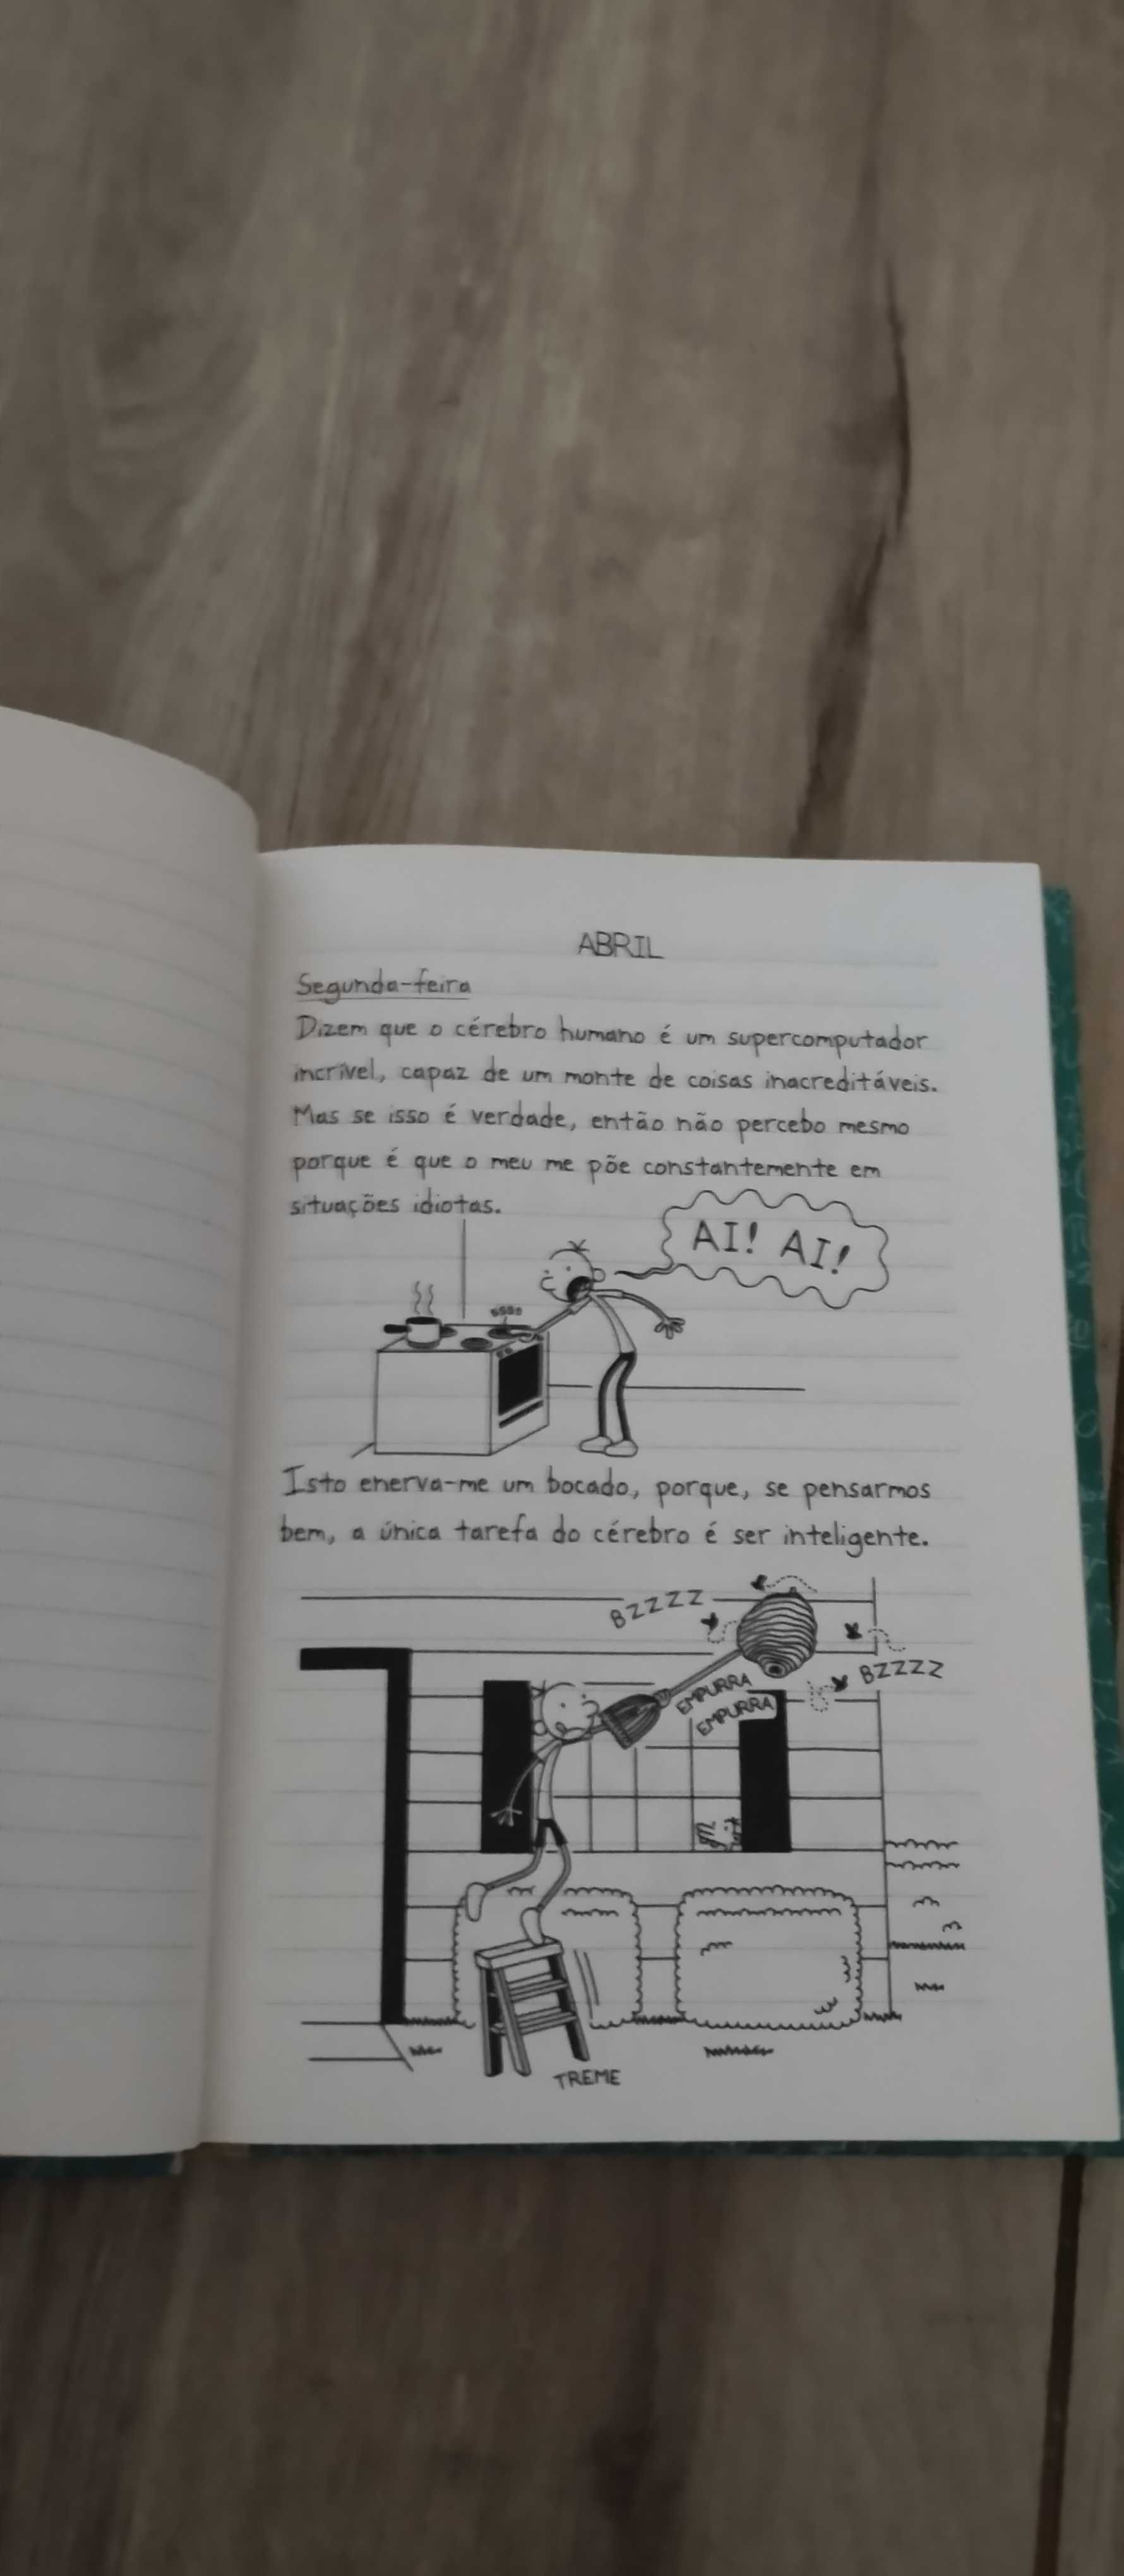 ABRIL
Segunda-feira
Dizem que o cérebro humano é um supercomputador
incrível, capaz de um monte de coisas inacreditáveis.
Mas se isso é verdade, então não percebo mesmo
porque é que o meu me põe constantemente em
situações idiotas.
AI! AI!
Isto enerva-me um bocado, porque, se pensarmos
bem, a única tarefa do cérebro é ser inteligente.
BZZZZ
BZZZZ
EMPURRA
EMPURRA
TREME